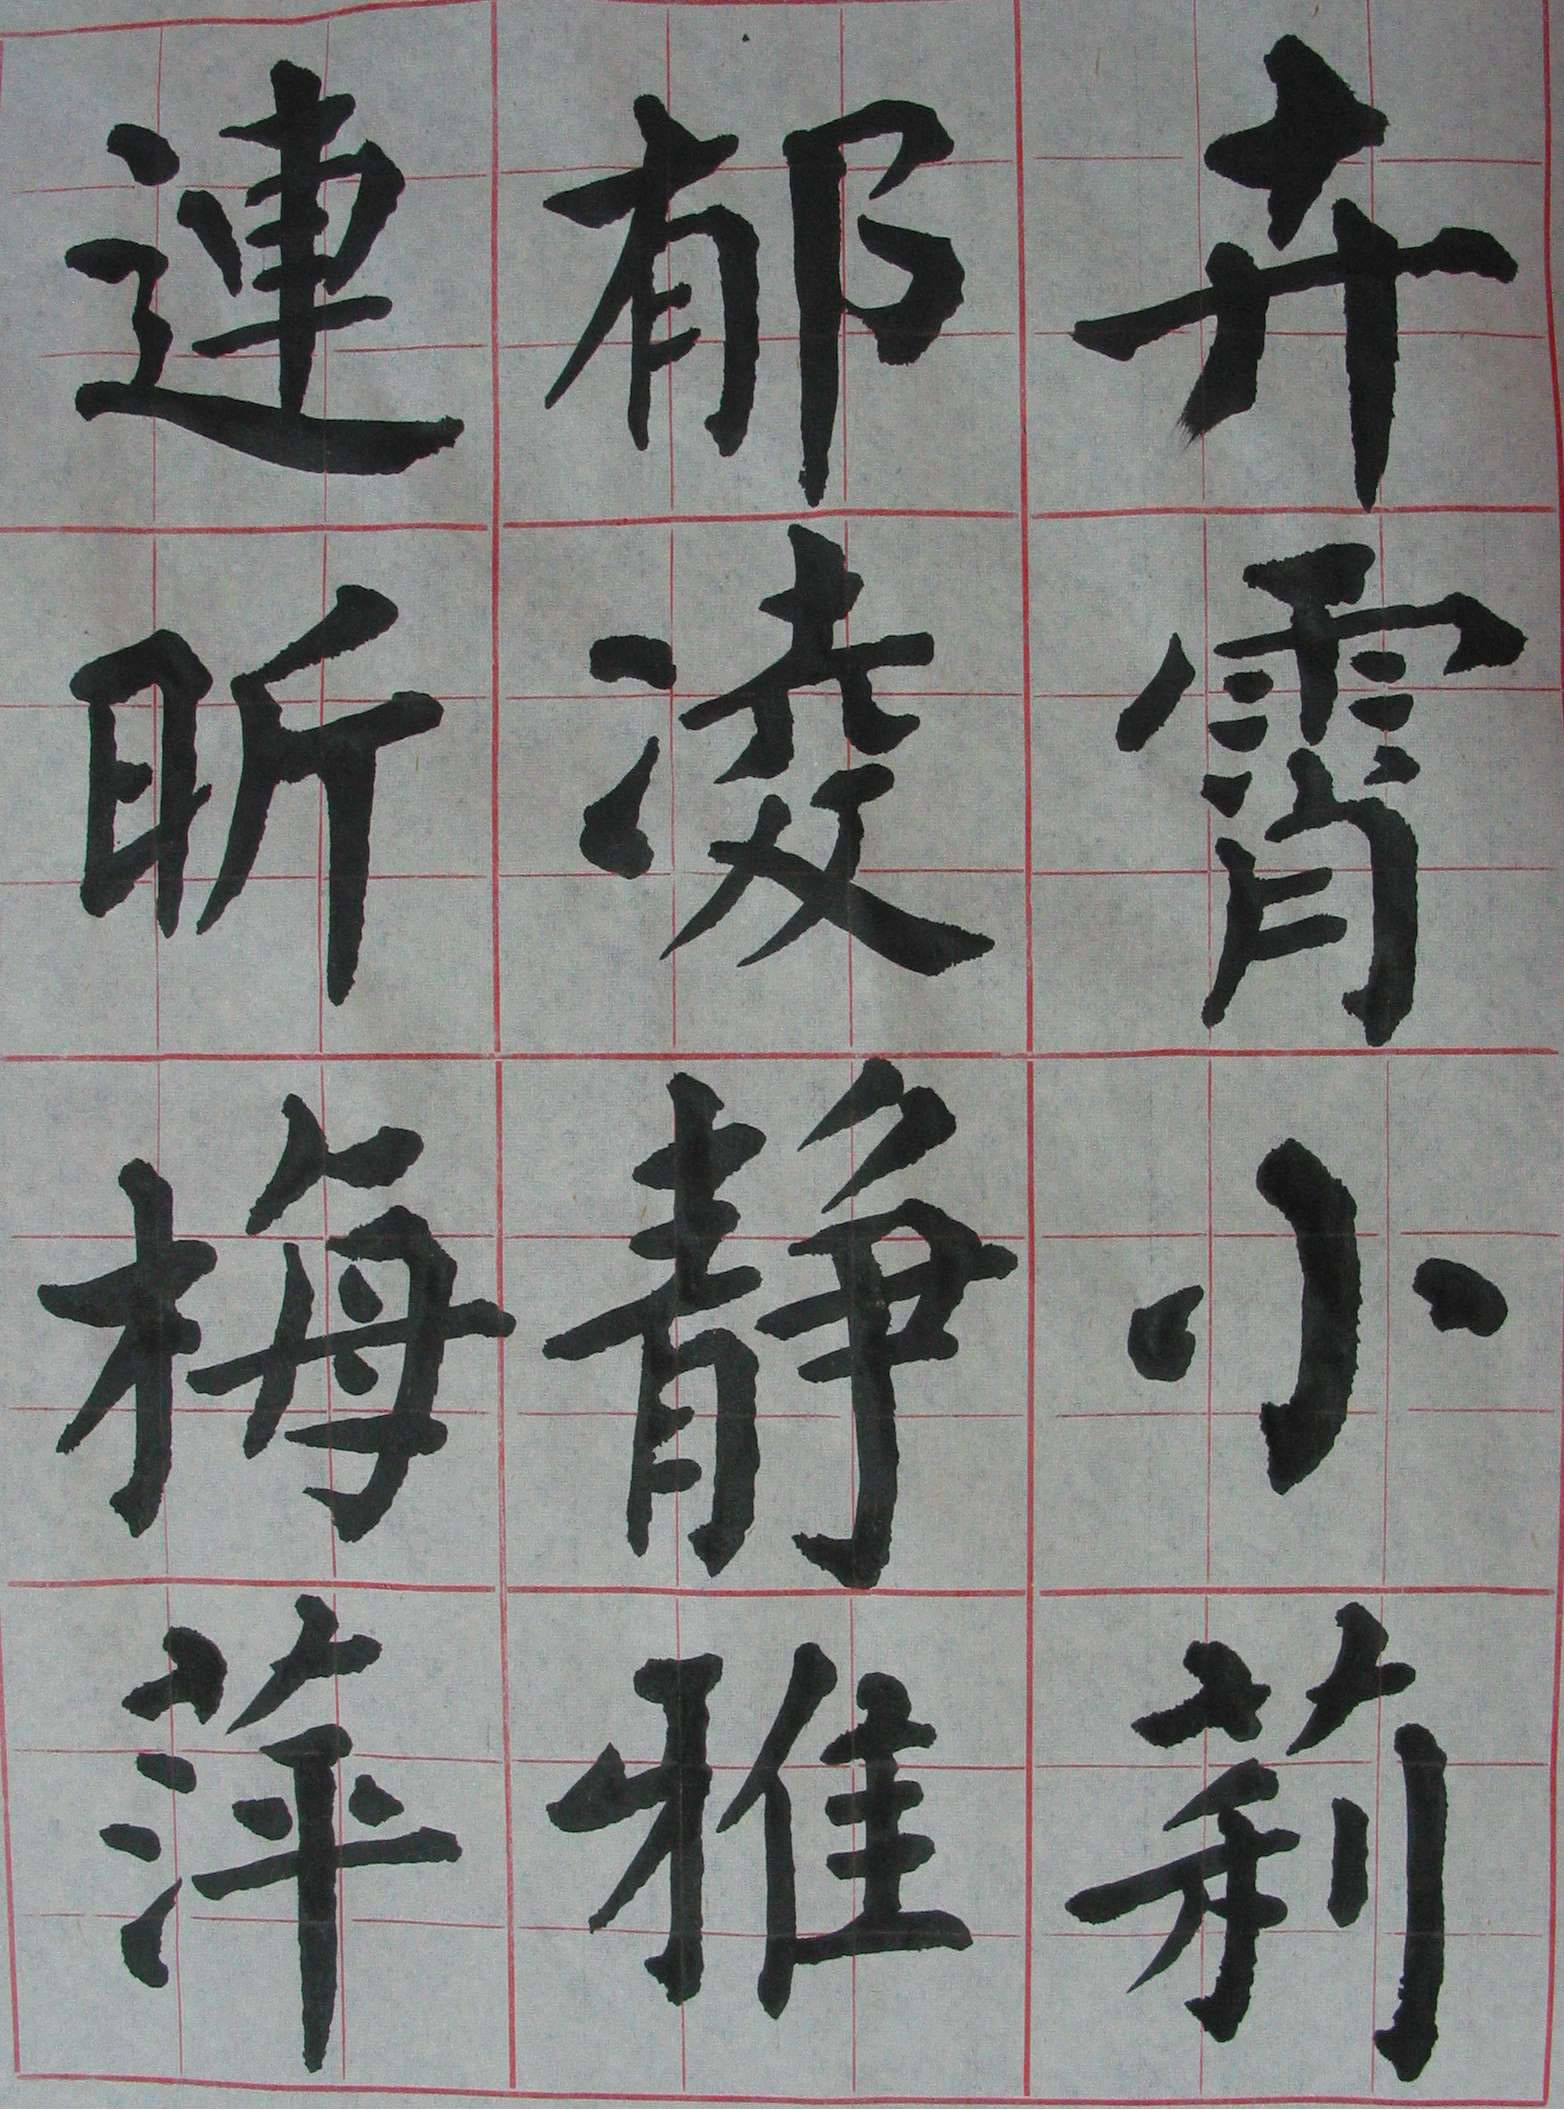 卉霄小莉
郁凌静雅
連昕梅萍